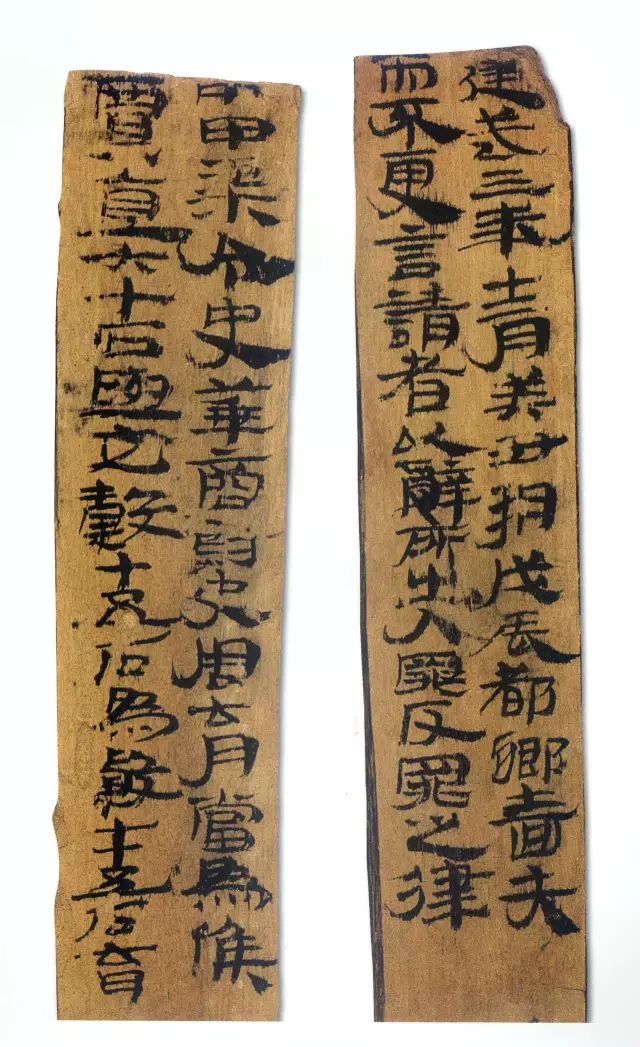 建武三年十二月癸丑朔戊辰都鄉嗇夫
而不更言請者以辭所出入罪反罪之律
中甲渠令史華商尉史周育當為候
賈直六十石與交穀十五石為穀七十五石育